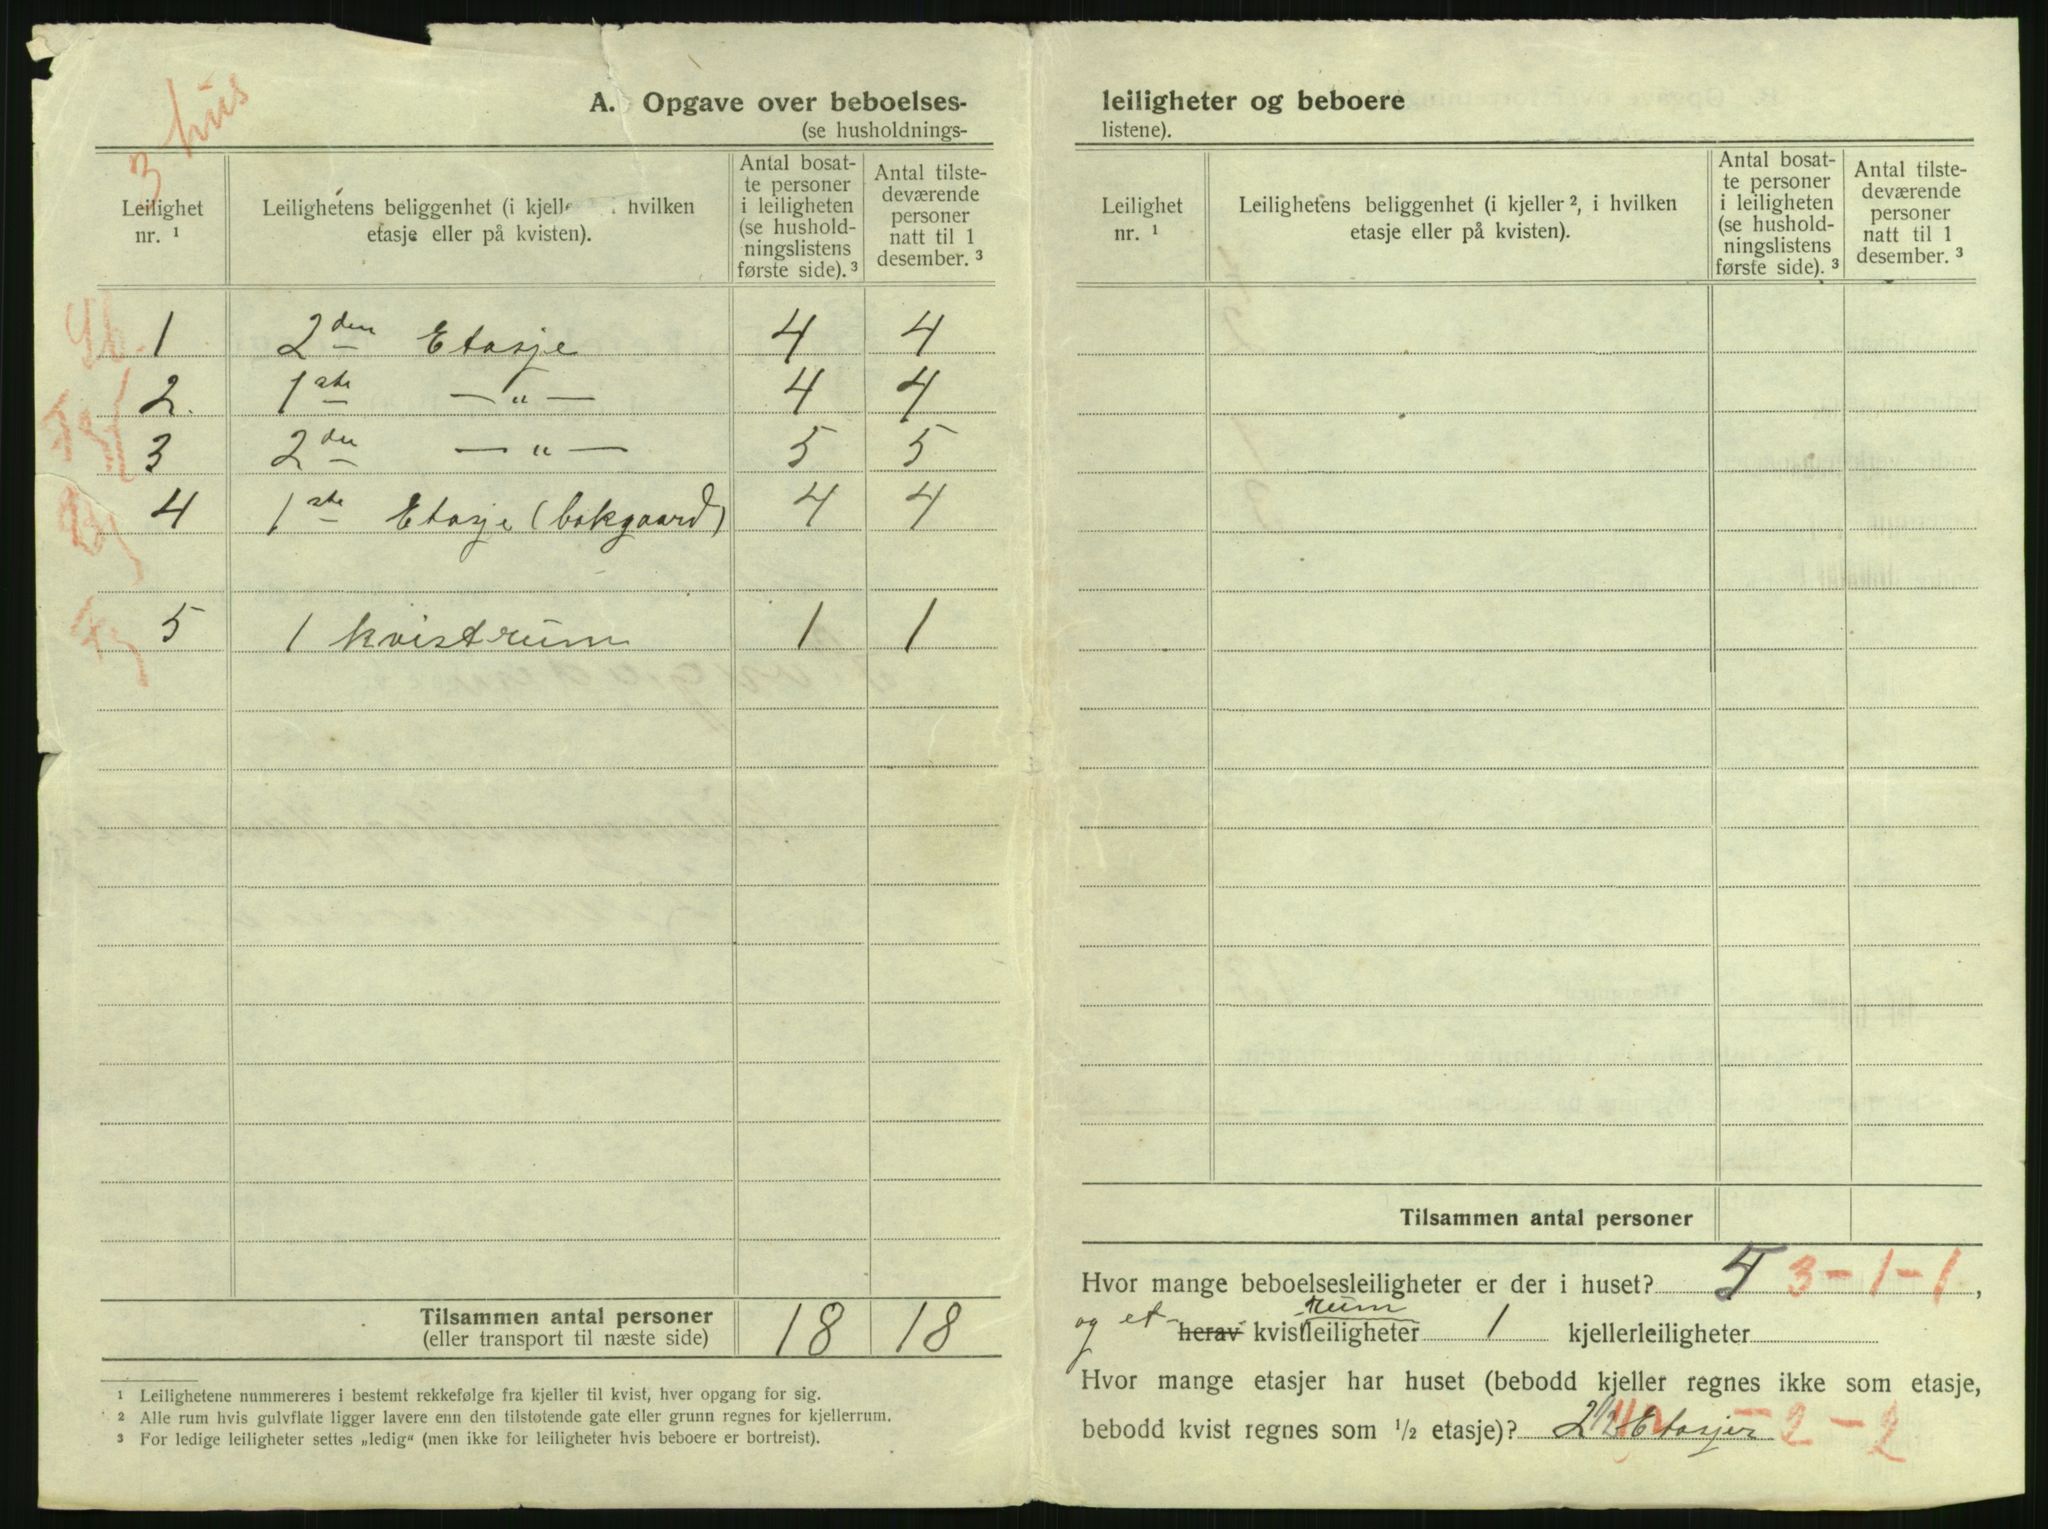 3 hus
A. Opgave over beboelses-
(se husholdnings-
Leilighet nr. ¹
Leilighetens beliggenhet (i kjelle i hvilken etasje eller på kvisten).
Antal bosat-
te personer
i leiligheten
(se hushold-
ningslistens
første side). ³
Antal tilste-
deværende
personer
natt til 1
desember. ³
1 2den Etasje 4 4
2. 1ste — „ — 4 4
3 2den — „ — 5 5
4 1ste Etasje (bakgaard) 4 4
5 1 kvistrum 1 1
Tilsammen antal personer 18 18
(eller transport til næste side)
¹ Leilighetene nummereres i bestemt rekkefølge fra kjeller til kvist, hver opgang for sig.
² Alle rum hvis gulvflate ligger lavere enn den tilstøtende gate eller grunn regnes for kjellerrum.
³ For ledige leiligheter settes „ledig“ (men ikke for leiligheter hvis beboere er bortreist).
leiligheter og beboere
listene).
Leilighet nr. ¹
Leilighetens beliggenhet (i kjeller ², i hvilken etasje eller på kvisten).
Antal bosat-
te personer
i leiligheten
(se hushold-
ningslistens
første side). ³
Antal tilste-
deværende
personer
natt til 1
desember. ³
Tilsammen antal personer
Hvor mange beboelsesleiligheter er der i huset? 5 3-1-1,
rum
og et herav kvistleiligheter 1 kjellerleiligheter
Hvor mange etasjer har huset (bebodd kjeller regnes ikke som etasje,
bebodd kvist regnes som ½ etasje)? 2½ Etasjer - 2 - 2